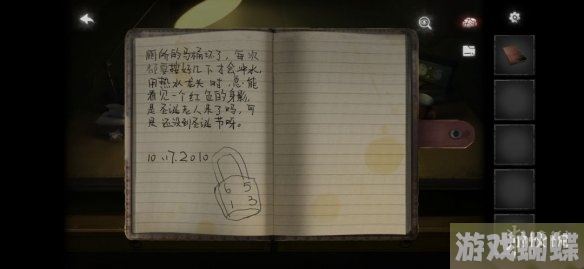 厕所的马桶坏了，每次
都要按好几下才会冲水，
用热水龙头时，总能
看见一个红色的身影，
是圣诞老人来了吗，可
是还没到圣诞节呀。
10.17.2010
6 5
1 3
游戏蝴蝶